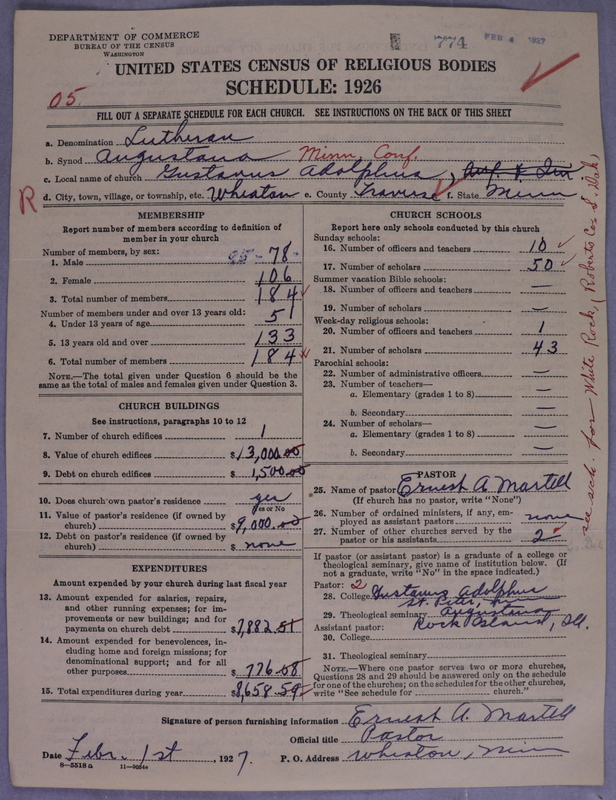 DEPARTMENT OF COMMERCE
BUREAU OF THE CENSUS
WASHINGTON
774
FEB 4 1927
UNITED STATES CENSUS OF RELIGIOUS BODIES
SCHEDULE: 1926
05
FILL OUT A SEPARATE SCHEDULE FOR EACH CHURCH. SEE INSTRUCTIONS ON THE BACK OF THIS SHEET
a. Denomination Lutheran
b. Synod Augustana Minn. Conf.
c. Local name of church Gustavus Adolphus,
R
d. City, town, village, or township, etc. Wheaton e. County Traverse f. State Minn
MEMBERSHIP
Report number of members according to definition of
member in your church
Number of members, by sex:
1. Male 78
2. Female 106
3. Total number of members 184
Number of members under and over 13 years old:
4. Under 13 years of age 51
5. 13 years old and over 133
6. Total number of members 184
NOTE.—The total given under Question 6 should be the
same as the total of males and females given under Question 3.
CHURCH BUILDINGS
See instructions, paragraphs 10 to 12
7. Number of church edifices 1
8. Value of church edifices $13,000.00
9. Debt on church edifices $1,500.00
10. Does church own pastor's residence yes
Yes or No
11. Value of pastor's residence (if owned by
church) $9,000.00
12. Debt on pastor's residence (if owned by
church) $ none
EXPENDITURES
Amount expended by your church during last fiscal year
13. Amount expended for salaries, repairs,
and other running expenses; for im-
provements or new buildings; and for
payments on church debt $7,882.51
14. Amount expended for benevolences, in-
cluding home and foreign missions; for
denominational support; and for all
other purposes $776.08
15. Total expenditures during year $8,658.59
CHURCH SCHOOLS
Report here only schools conducted by this church
Sunday schools:
16. Number of officers and teachers 10
17. Number of scholars 50
Summer vacation Bible schools:
18. Number of officers and teachers —
19. Number of scholars —
Week-day religious schools:
20. Number of officers and teachers 1
21. Number of scholars 43
Parochial schools:
22. Number of administrative officers —
23. Number of teachers—
a. Elementary (grades 1 to 8) —
b. Secondary —
24. Number of scholars—
a. Elementary (grades 1 to 8) —
b. Secondary —
PASTOR
25. Name of pastor Ernest A. Martell
(If church has no pastor, write "None")
26. Number of ordained ministers, if any, em-
ployed as assistant pastors none
27. Number of other churches served by the
pastor or his assistants 2
If pastor (or assistant pastor) is a graduate of a college or
theological seminary, give name of institution below. (If
not a graduate, write "No" in the space indicated.)
Pastor: 2
28. College Gustavus Adolphus
St. Peter, Minn
29. Theological seminary Augustana
Assistant pastor: Rock Island, Ill.
30. College
31. Theological seminary
NOTE.—Where one pastor serves two or more churches,
Questions 28 and 29 should be answered only on the schedule
for one of the churches; on the schedules for the other churches,
write "See schedule for church."
see sch. for White Rock, (Roberts Co. S. Dak.)
Signature of person furnishing information Ernest A. Martell
Official title Pastor
Date Febr. 1st, 1927. P. O. Address Wheaton, Minn
8—5518 a 11—9054